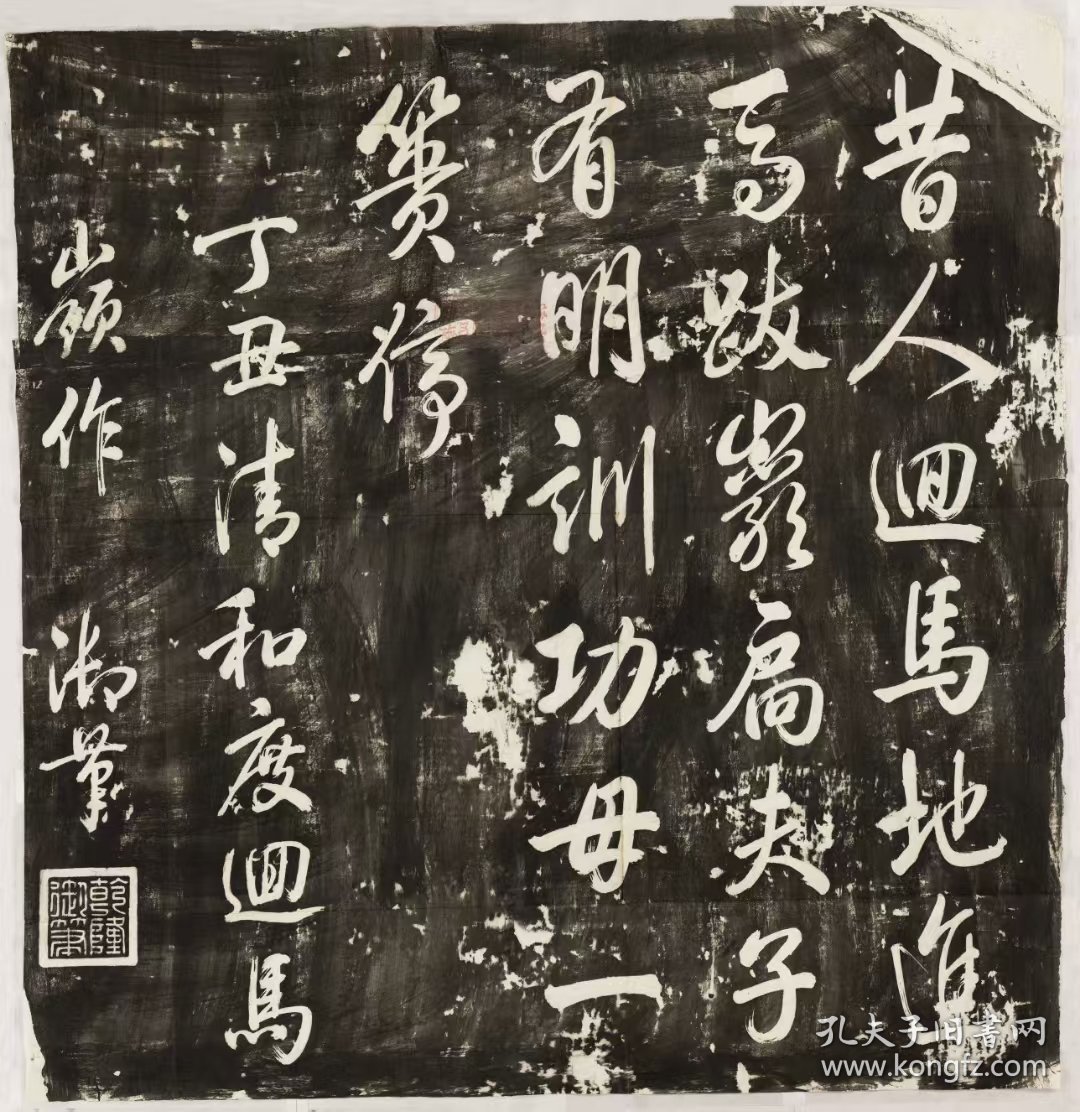 昔人迴馬地進
馬跋巖扃夫子
有明訓功毋一
簣停
丁丑清和度迴馬
嶺作 御筆
乾隆御筆
孔夫子旧書网
www.kongfz.com